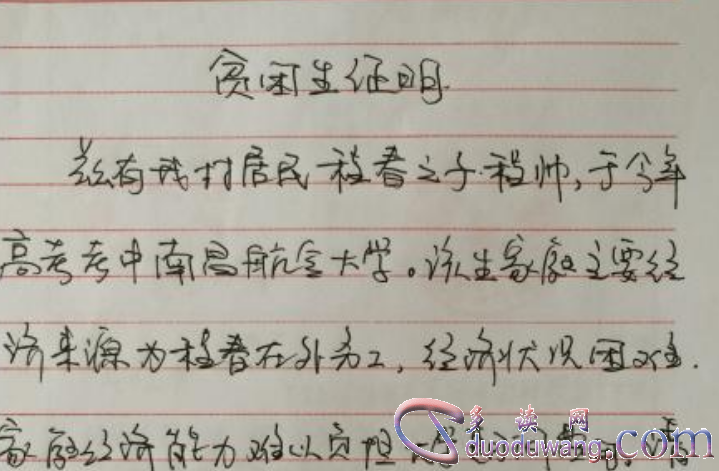 贫困生证明
兹有我村居民程春之子程帅,于今年
高考考中南昌航空大学。该生家庭主要经
济来源为程春在外务工,经济状况困难.
家庭经济能力难以负担
多读网
duoduwang.com